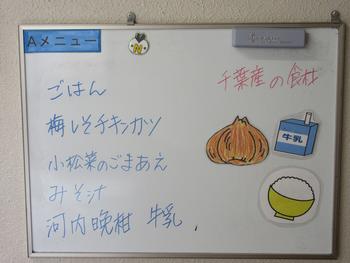 Aメニュー
千葉産の食材
ごはん
梅しそチキンカツ
小松菜のごまあえ
みそ汁
河内晩柑 牛乳
牛乳